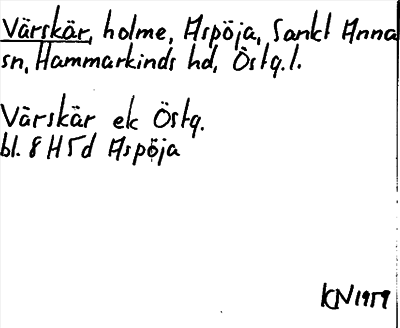 Värskär, holme, Aspöja, Sankt Anna
sn, Hammarkinds hd, Östg. l.
Värskär ek Östg.
bl. 8 H 5 d Aspöja
KN 1959